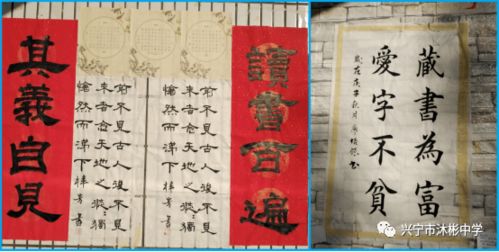 讀書百遍
前不見古人後不見
來者念天地之悠〻
愴然而涕下
前不見古人後不見
來者念天地之悠〻
愴然而涕下
其義自見
藏書為富
愛字不貧
歲在庚子秋月
兴宁市沐彬中学